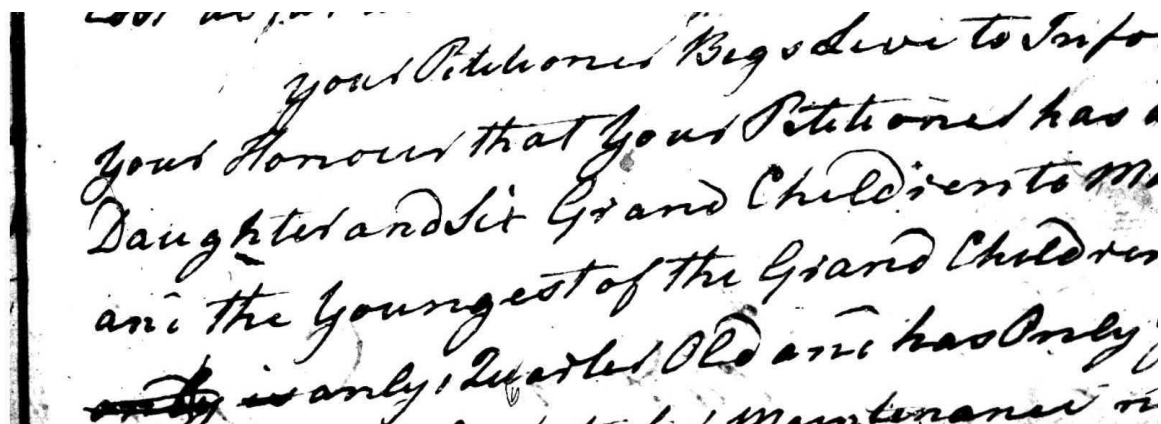 your Petitioner Begs Leve to Info
your Honour that your Petitioner has a
Daughter and Six Grand Children to Ma
and the youngest of the Grand Children
is only, Quarter Old and has Only
Maintenance